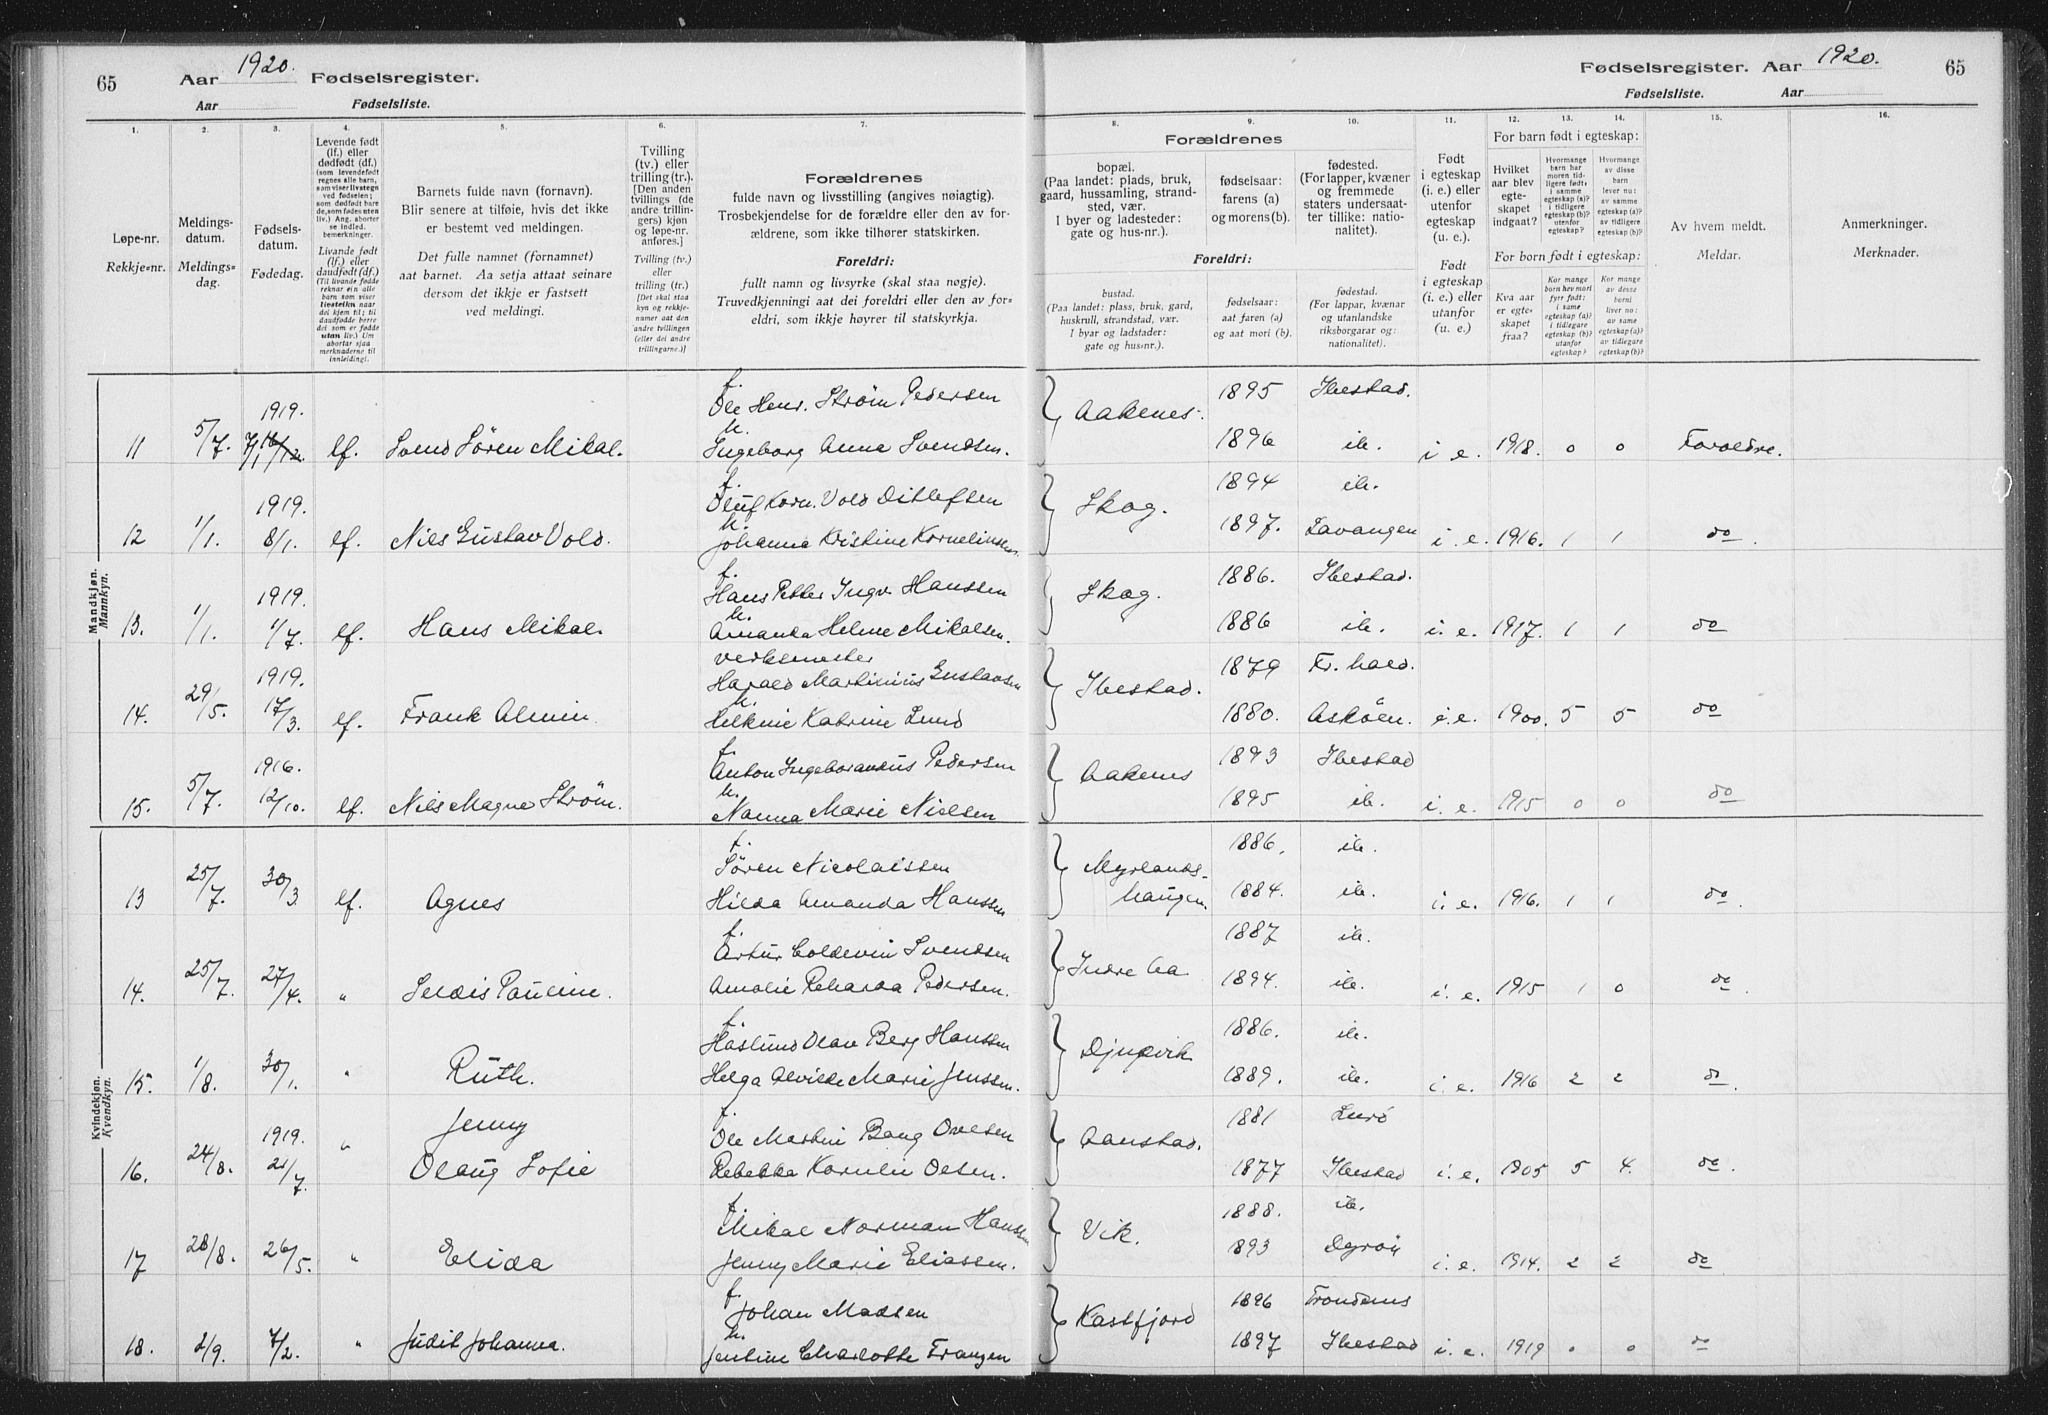 65 Aar 1920. Fødselsregister.
Aar Fødselsliste.
Fødselsregister. Aar 1920. 65
Fødselsliste. Aar
1. 2. 3. 4. 5. 6. 7. 8. 9. 10. 11. 12. 13. 14. 15. 16.
Løpe-nr.
Rekkje-nr.
Meldings-
datum.
Meldings-
dag.
Fødsels-
datum.
Fødedag.
Levende født
(lf.) eller
dødfødt (df.)
(som levendefødt
regnes alle barn,
som viser livstegn
ved fødselen;
som dødfødt bare
de, som fødes uten
liv.) Ang. aborter
se indled.
bemerkninger.
Livande født
(lf.) eller
daudfødt (df.)
(Til livande fødde
reknar ein alle
barn som viser
livsteikn naar
dei kjem til; til
daudfødde berre
dei som er fødde
utan liv.) Um
abortar sjaa
merknaderne til
innleiding).
Barnets fulde navn (fornavn).
Blir senere at tilføie, hvis det ikke
er bestemt ved meldingen.
Det fulle namnet (fornamnet)
aat barnet. Aa setja attaat seinare
dersom det ikkje er fastsett
ved meldingi.
Tvilling
(tv.) eller
trilling (tr.).
[Den anden
tvillings (de
andre trillin-
gers) kjøn
og løpe-nr.
anføres.]
Tvilling (tv.)
eller
trilling (tr.)
[Det skal staa
kyn og rekkje-
numer aat den
andre tvillingen
(eller dei andre
trillingarne.)]
Forældrenes
fulde navn og livsstilling (angives nøiagtig).
Trosbekjendelse for de forældre eller den av for-
ældrene, som ikke tilhører statskirken.
Foreldri:
fullt namn og livsyrke (skal staa nøgje).
Truvedkjenningi aat dei foreldri eller den av for-
eldri, som ikkje høyrer til statskyrkja.
Forældrenes
bopæl.
(Paa landet: plads, bruk,
gaard, hussamling, strand-
sted, vær.
I byer og ladesteder:
gate og hus-nr.).
fødselsaar:
farens (a)
og morens (b).
fødested.
(For lapper, kvæner
og fremmede
staters undersaat-
ter tillike: natio-
nalitet).
Foreldri:
bustad.
(Paa landet: plass, bruk, gard,
huskrull, strandstad, vær.
I byar og ladstader:
gate og hus-nr.).
fødselsaar:
aat faren (a)
og aat mori (b).
fødestad.
(For lappar, kvænar
og utanlandske
riksborgarar og:
nationalitet).
Født
i egteskap
(i. e.) eller
utenfor
egteskap
(u. e.).
Født
i egteskap
(i. e.) eller
utanfor
(u. e.)
For barn født i egteskap:
Hvilket
aar blev
egte-
skapet
indgaat?
Hvormange
barn har
moren tid-
ligere født;
i samme
egteskap (a)?
i tidligere
egteskap (b)?
utenfor
egteskap?
Hvormange
av disse
barn
lever nu:
av samme
egteskap (a)?
av tidligere
egteskap (b)?
For born født i egteskap:
Kva aar
er egte-
skapet
fraa?
Kor mange
born hev mori
fyrr født:
i same
egteskap (a)?
i tidlegare
egteskap (b)?
utanfor
egteskap?
Kor mange
av desse
borni
liver no:
av same
egteskap (a)?
av tidlegare
egteskap (b)?
Av hvem meldt.
Meldar.
Anmerkninger.
Merknader.
Mandkjøn.
Mannkyn.
1919. f.
Ole Henr. Strøm Pedersen Aakenes. 1895 Ibestad.
11 5/7. 7/1 lf. Svend Søren Mikal. m.
Ingeborg Anna Svendsen. 1896 ib. i e. 1918. 0 0 Forældre.
1919. f.
Oluf Korn. Vold Ditlefsen Skog. 1894 ib.
12 1/1. 8/1. lf. Nils Gustav Vold. m.
Johanna Kristine Kornelinsen. 1897. Lavangen i. e. 1916. 1 1 do
1919. f.
Hans Petter Ingv. Hanssen Skog. 1886. Ibestad.
13. 1/1. 1/7. lf. Hans Mikal. m.
Amanda Heline Mikalsen. 1886 ib. i. e. 1917. 1 1 do
verksmester
1919. Harald Martinius Gustavsen Ibestad. 1879 Fr. hald.
14. 29/5. 17/3. lf. Frank Almin. m.
Katrine Lund 1880. Askøen. i. e. 1900. 5 5 do
1916. f.
Anton Pedersen Aakenes 1893 Ibestad
15. 5/7. 12/10. lf. Nils Magne Strøm. m.
Nanna Marie Nielsen 1895 ib. i e. 1915 0 0 do
Kvindekjøn.
Kvendkyn.
f.
Søren Nicolaissen Myrlands-
haugen. 1886. ib.
13 25/7. 30/3. lf. Agnes Hilda Amanda Hanssen 1884. ib. i. e. 1916. 1 1 do
f.
Artur Coldevin Svendsen Indre Aa 1887 ib.
14. 25/7. 27/4. " Seldis Pauline. Amalie Rikarda Pedersen. 1894. ib. i. e. 1915 1 0 do
f.
Haslund Olav Berg Hanssen Djupvik 1886. ib.
15. 1/8. 30/1. " Ruth. Helga Alvilde Marie Jenssen. 1889. ib. i e. 1916 2 2 do
Jenny f.
1919. Ole Martin Bang Ovesen Aanstad. 1881 Lurø
16. 24/8. 21/7. " Olaug Sofie Rebekka Kornelie Olsen. 1877 Ibestad i. e. 1905 5 4. do
f.
Mikal Norman Hanssen Vik. 1888. ib.
17 28/8. 26/5. " Elida Jenny Marie Eliassen. 1893 Dyrøy i. e. 1914. 2 2 do
f.
Johan Madsen Kastfjord 1896 Trondenes
18. 2/9. 7/2. " Judit Johanna. m.
Jentine Charlotte Frantzen 1897 Ibestad i. e. 1919 0 0 do